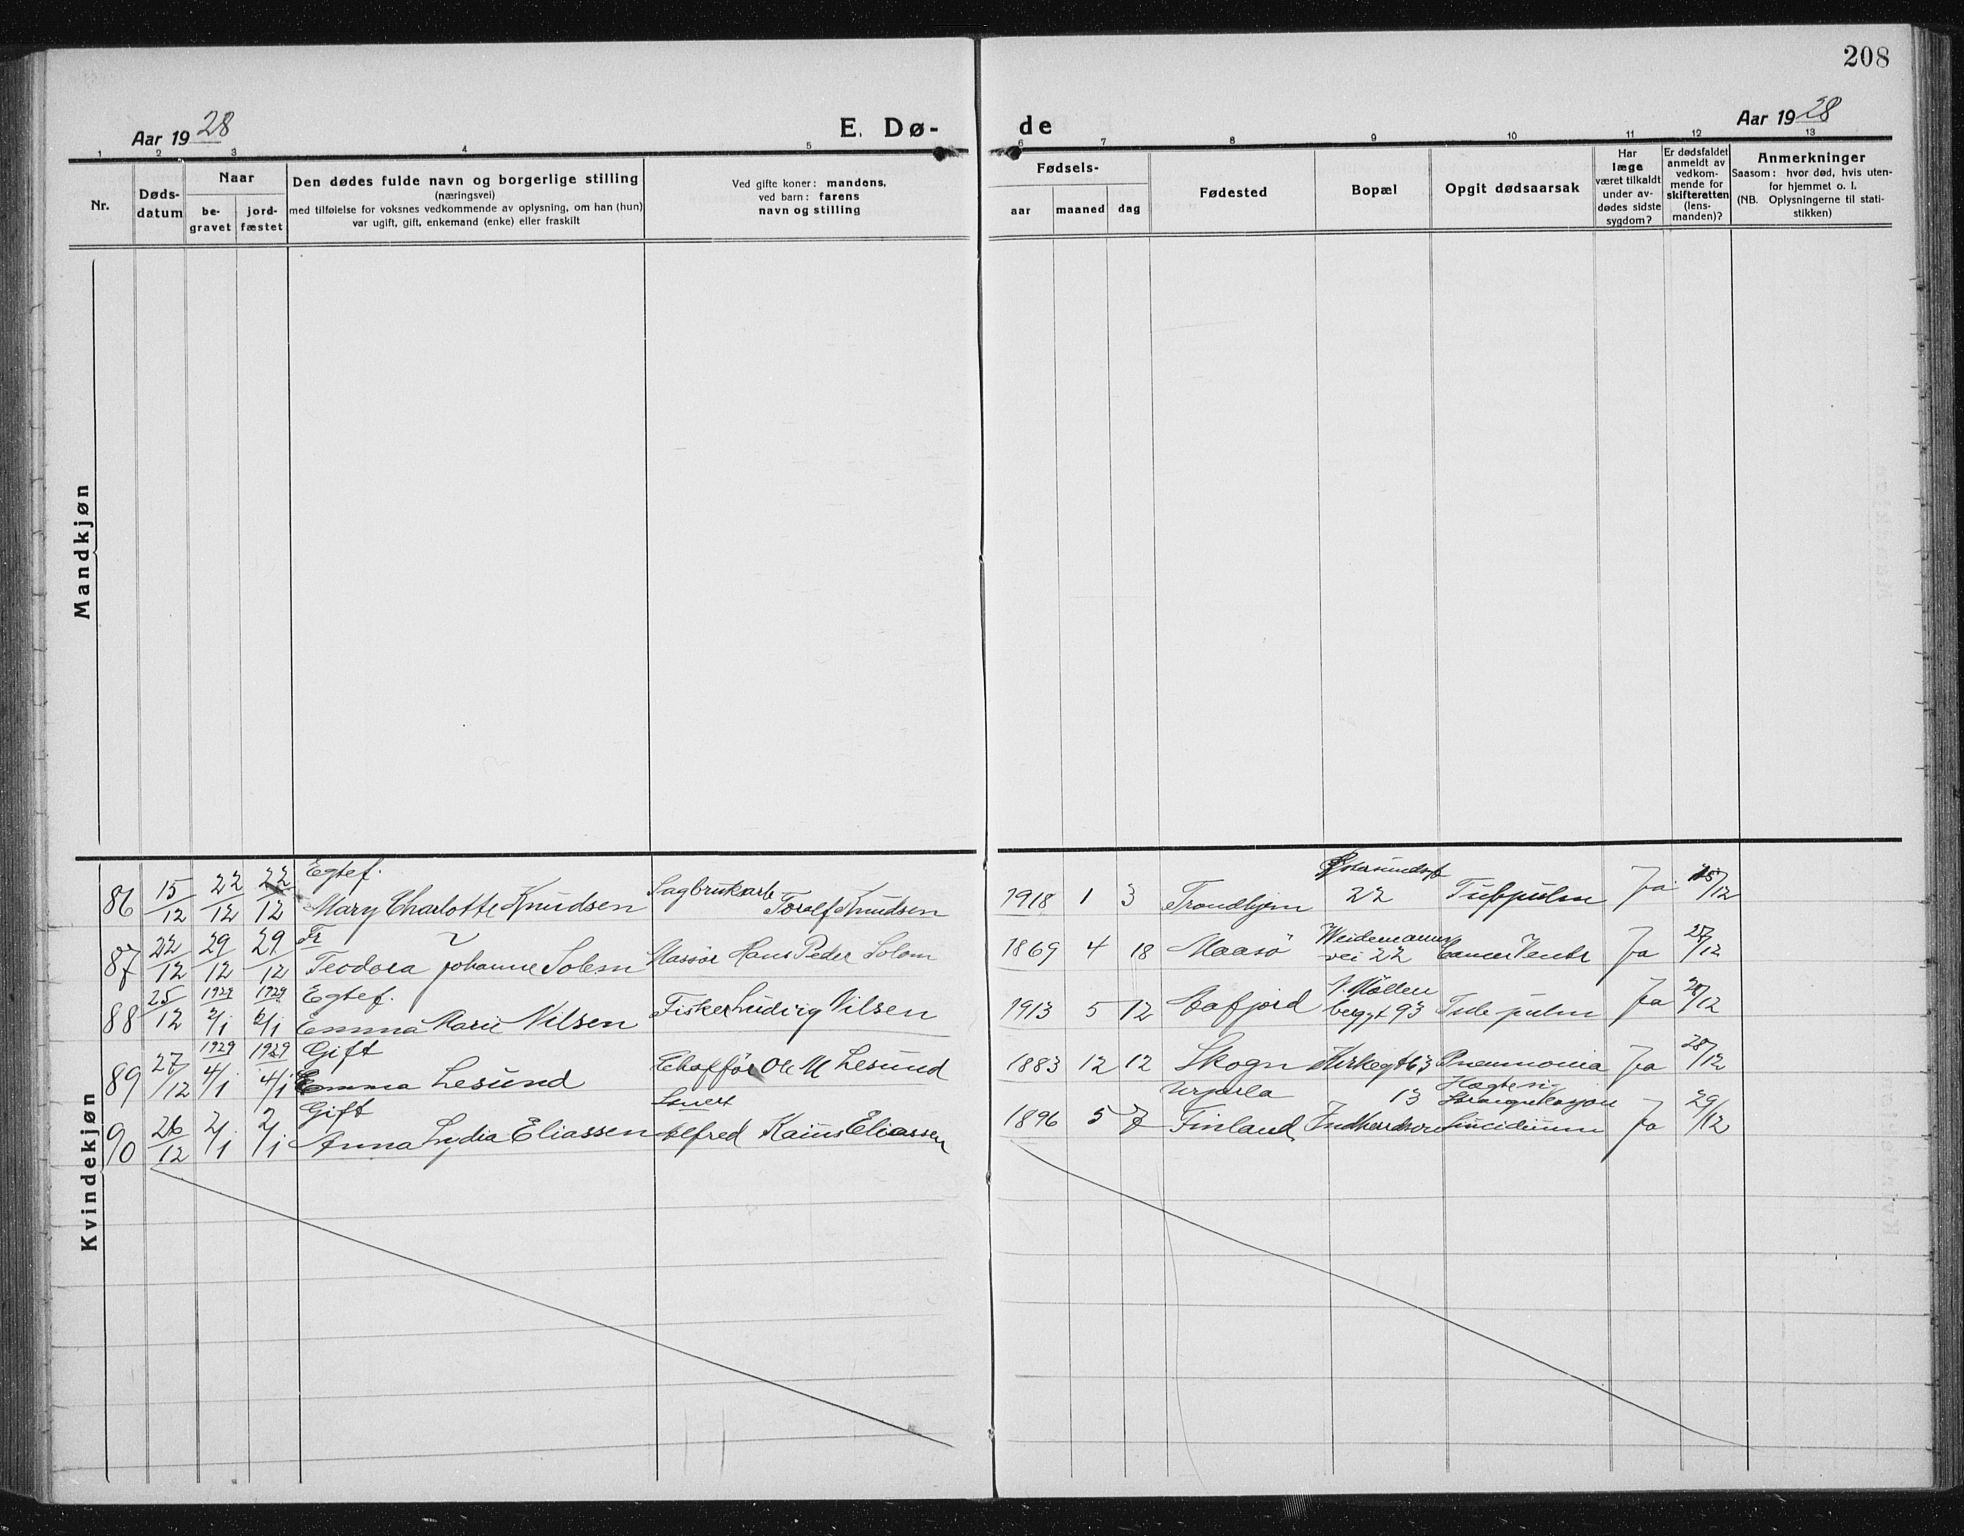 208
Aar 1928
E. Dø-
de
Aar 1928
1 2 3 4 5 6 7 8 9 10 11 12 13
Nr.
Døds-
datum
Naar
be-
gravet
jord-
fæstet
Den dødes fulde navn og borgerlige stilling
(næringsvei)
med tilføielse for voksnes vedkommende av oplysning, om han (hun)
var ugift, gift, enkemand (enke) eller fraskilt
Ved gifte koner: mandens,
ved barn: farens
navn og stilling
Fødsels-
aar maaned dag
Fødested
Bopæl
Opgit dødsaarsak
Har
læge
været tilkaldt
under av-
dødes sidste
sygdom?
Er dødsfaldet
anmeldt av
vedkom-
mende for
skifteretten
(lens-
manden)?
Anmerkninger
Saasom: hvor død, hvis uten-
for hjemmet o. l.
(NB. Oplysningerne til stati-
stikken)
Mandkjøn
Kvindekjøn
Egtef.
86 15/12 22/12 22/12 Mary Charlotte Knudsen Sagbrukarb Toralf Knudsen 1918 1 3 Trondhjem 22 Tubpulm Ja 15/12
Fr
87 22/12 29/12 29/12 Teodora Johanne Solem Massör Hans Peder Solem 1869 4 18 Maasö Weidemanns
vei 22 Cancer Ventr Ja 27/12
1929 1929 Egtef.
88 25/12 2/1 2/1 Emma Marie Nilsen Fisker Ludvig Nilsen 1913 5 12 Aafjord Möllen
bergt 93 Tube pulm Ja 28/12
1929 1929 Gift
89 27/12 4/1 4/1 Emma Lesund Chafför Ole M Lesund 1883 12 12 Skogn Kirkegt 63 Pneumonia Ja 28/12
Gift 13
90 26/12 2/1 2/1 Anna Lydia Eliassen Alfred Eliassen 1896 5 7 Finland Suicidium Ja 29/12